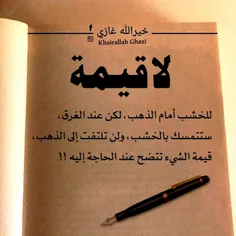 خيرالله غازي
Khairallah Ghazi
لا قيمة
للخشب أمام الذهب، لكن عند الغرق،
ستتمسك بالخشب، ولن تلتفت إلى الذهب،
قيمة الشيء تتضح عند الحاجة إليه !!